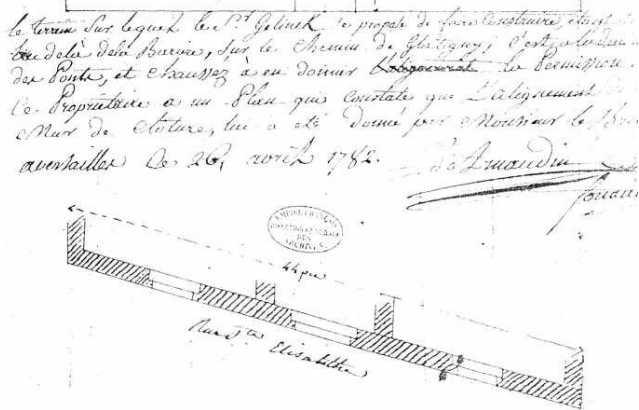 le terrein Sur lequel le Sr. Gelinek Se propose de faire Construire, étant
au delà dela Bariere, Sur le Chemin de Glatigny, C'est a
des Ponts, et Chaussez à en donner la Permission.
Ce Proprietaire a un Plan qui Constate que L'alignement
Mur de Cloture, lui a eté donné par Monsieur le
aversailles Ce 26, avril 1782.
EMPIRE FRANÇAIS
DES
ARCHIVES
44 pi
Rue Ste Elisabethe